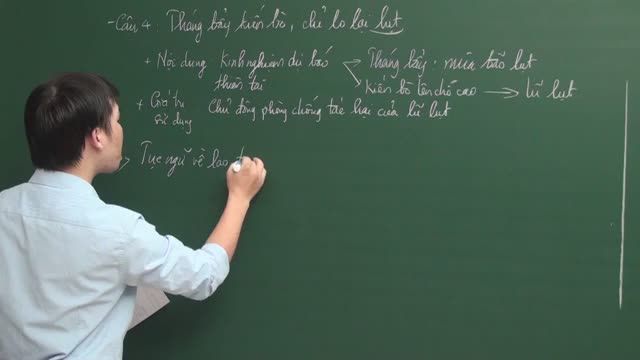 - Câu 4: Tháng bảy kiến bò, chỉ lo lại lụt
+ Nội dung Kinh nghiệm dự báo thiên tai
Tháng bảy: mùa bão lụt
kiến bò lên chỗ cao → lũ lụt
+ Giá trị sử dụng Chủ động phòng chống tác hại của lũ lụt
Tục ngữ về lao